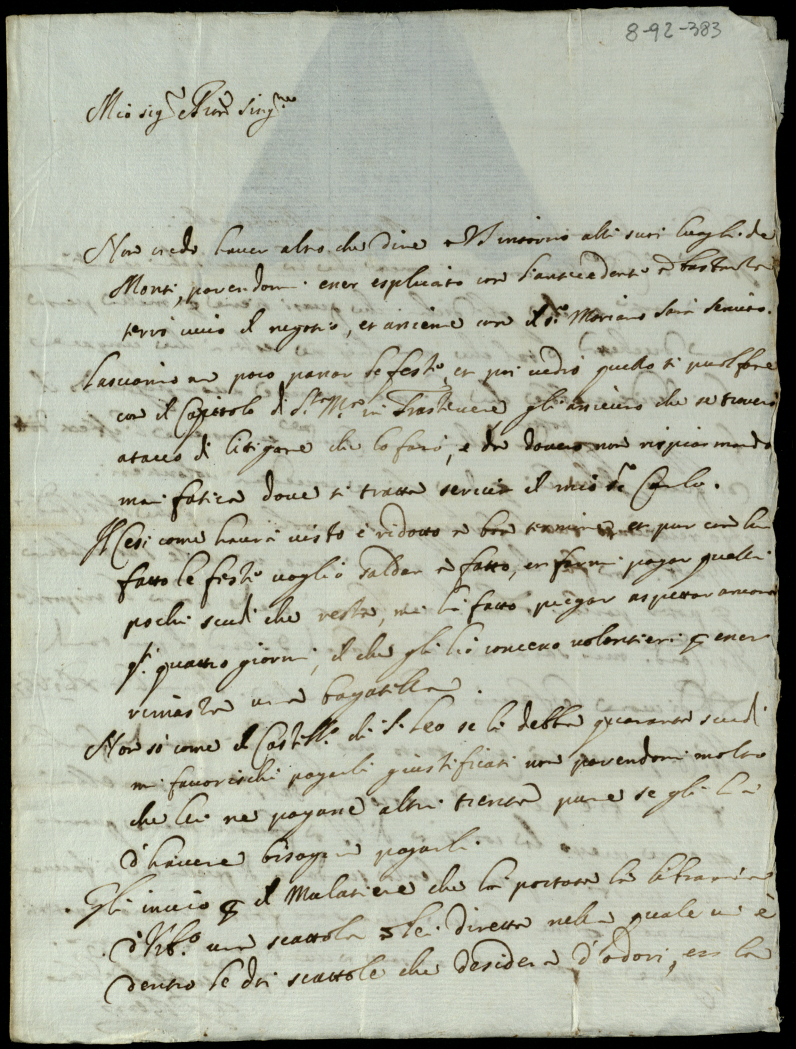 8-92-383
Mio sig.r e Pron sing.mo
Non credo haver altro che dire a VS intorno alli suoi luoghi de
Monti, parendomi esser esplicato con l'antecedente à bastanza
il negotio, et assieme con il S.r Mariano sarà servito.
Lasciamo un poco passar le feste, et poi vedrò quello si puol fare
con il Capitolo di S.ta M.a in Trastevere, gli assicuro che se troverò
attacco di litigare che lo farò, e da dovero non rispiarmando
mai fatica dove si tratta servire il mio S.r Carlo.
Il Cesi come haverà visto è ridotto a bon termine, et pur
fatto le feste voglio saldar à fatto, et farmi pagar quelli
pochi scudi che resta, mi hà fatto pregar aspettar ancora
q.ti quattro giorni, il che gli hò concesso volontieri p esser
rimasta una bagatella.
Non sò come il Castell.o di S. Leo se li debba quaranta scudi
mi favorischi pagarli giustificati non parendomi molto
che lei ne pagasse altri trenta pure se gli hà
d'havere bisogna pagarli.
Gli invio p il Mulatiere che hà portato la libraria
d'Urb.o una scattola à lei diretta nella quale vi è
dentro le doi scattole che desidera d'odori, et la